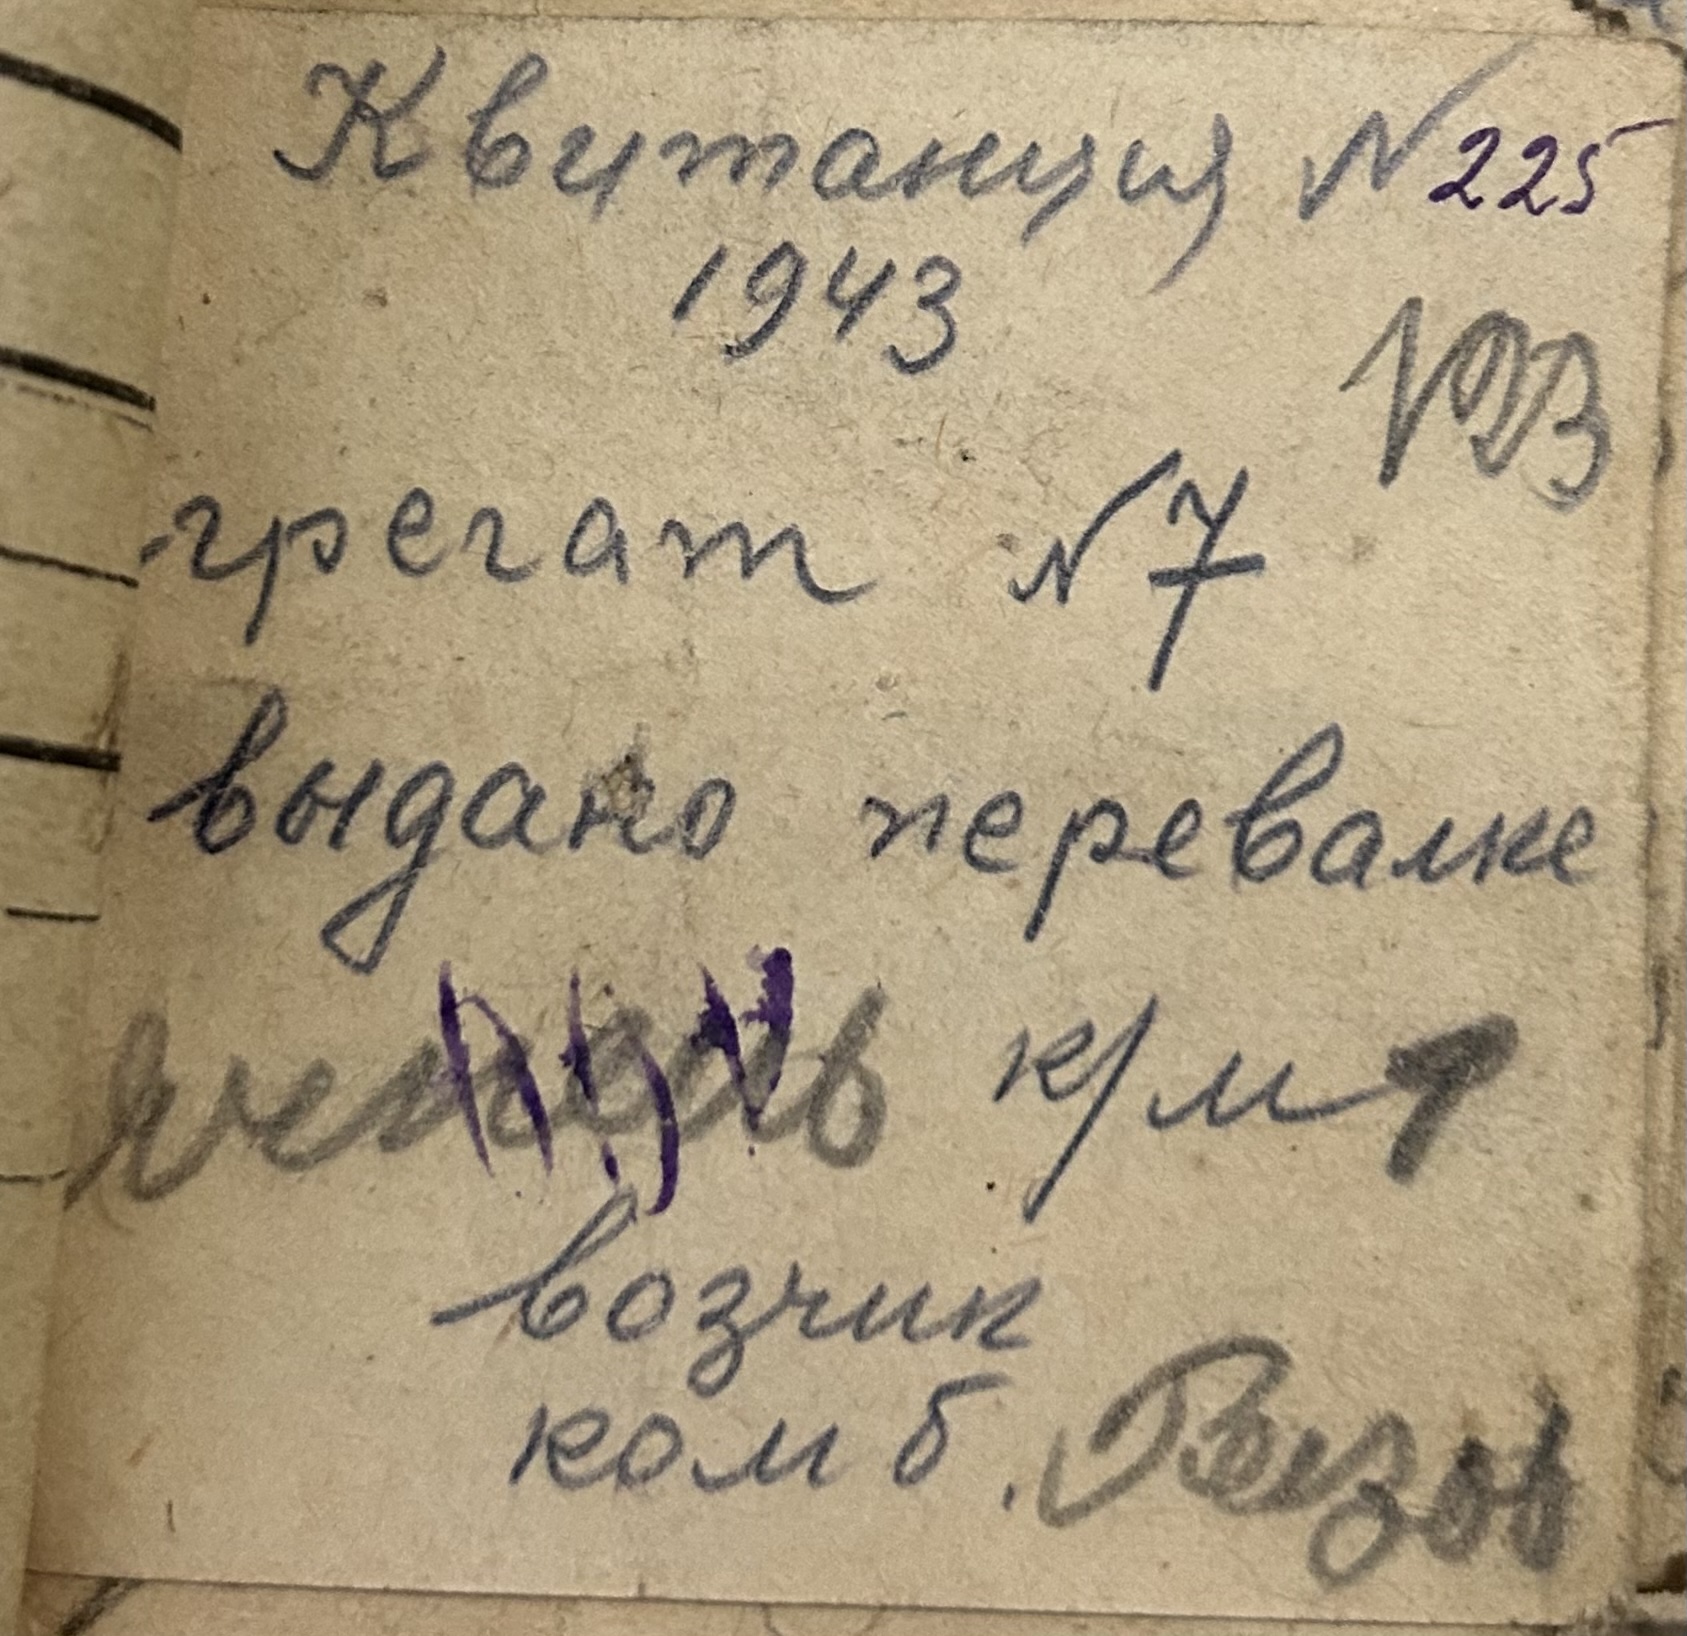 Квитанция N 225
1943
грегат N 7
выдано перевалке
к/м
возчик
комб.